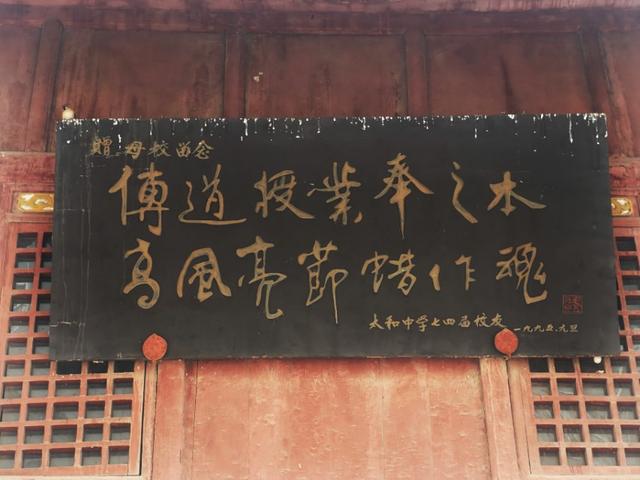 赠母校留念
傳道授業奉之本
高風亮節蜡作魂
太和中学七四届校友
一九九五.九立